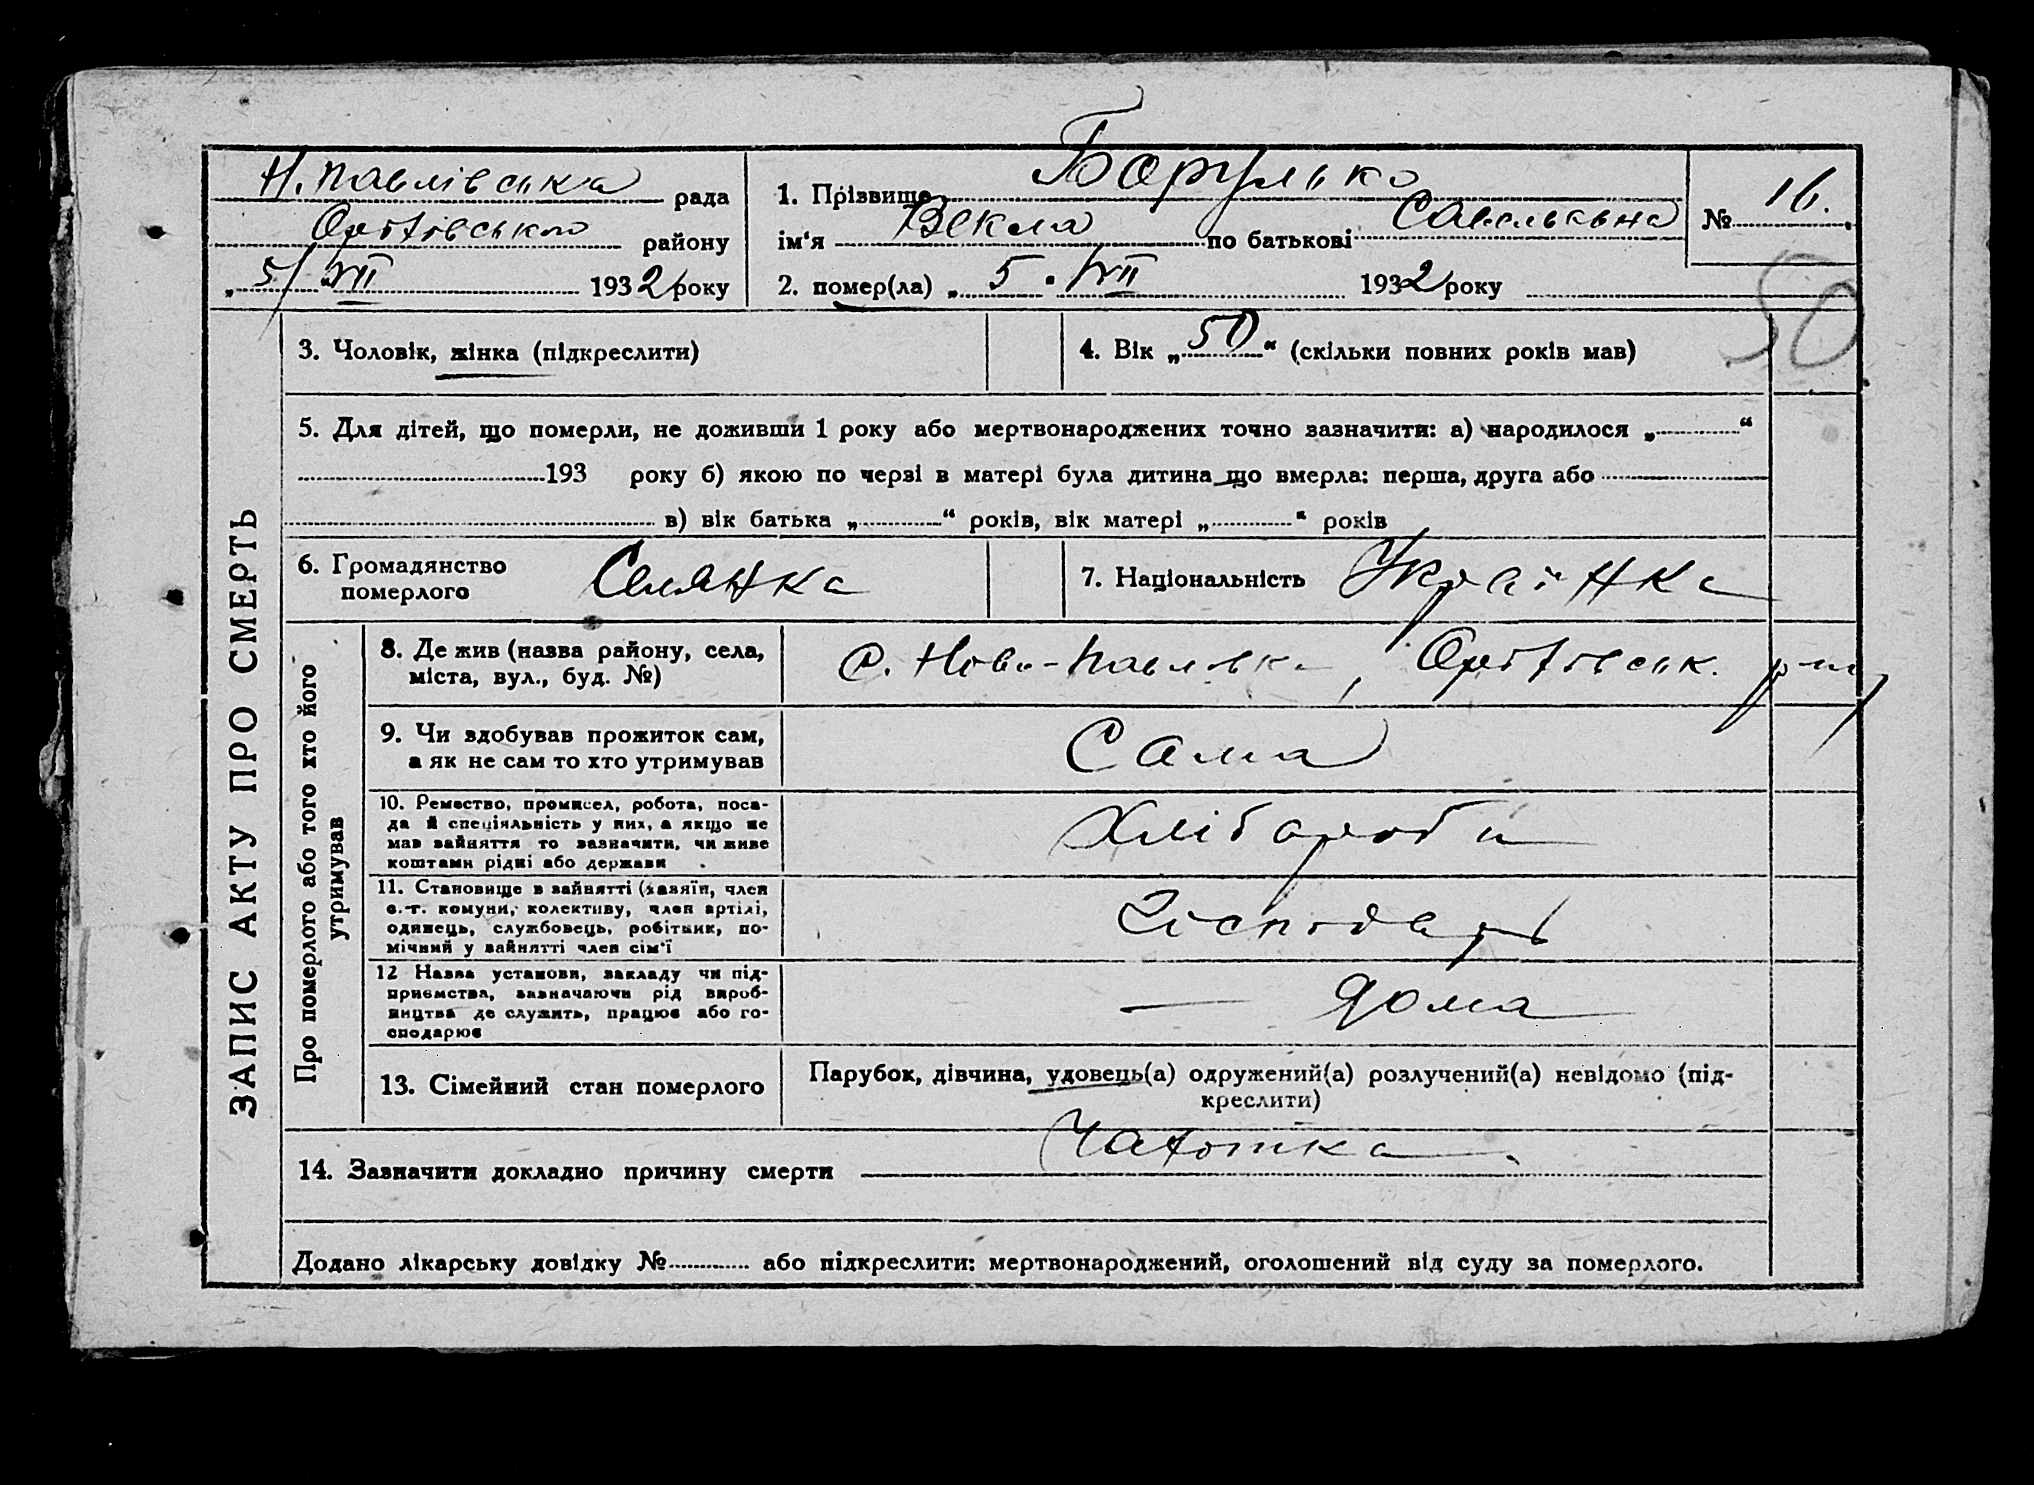 Н. Павлівська рада
Оріхівського району
„5/“ VII 1932 року
1. Прізвище Борулько
ім'я Векла по батькові Савельевна
№ 16.
2. помер(ла) „5“ VII 1932 року
50
ЗАПИС АКТУ ПРО СМЕРТЬ
3. Чоловік, жінка (підкреслити)
4. Вік „50“ (скільки повних років мав)
5. Для дітей, що померли, не доживши 1 року або мертвонароджених точно зазначити: а) народилося „ “
193 року б) якою по черзі в матері була дитина що вмерла: перша, друга або
в) вік батька „ “ років, вік матері „ “ років
6. Громадянство померлого Селянка
7. Національність Українка
Про померлого або того хто його утримував
8. Де жив (назва району, села,
міста, вул., буд. №)
с. Ново-Павлівка, Оріхівськ. р-ну
9. Чи здобував прожиток сам,
а як не сам то хто утримував
Сама
10. Ремество, промисел, робота, поса-
да й спеціяльність у них, а якщо не
мав зайняття то зазначити, чи живе
коштами рідні або держави
Хлібороби
11. Становище в зайнятті (хазяїн, член
с.-г. комуни, колективу, член артілі,
одинець, службовець, робітник, по-
мічний у зайнятті член сім'ї
Господарь
12 Назва установи, закладу чи під-
приємства, зазначаючи рід вироб-
ництва де служить, працює або го-
сподарює
— дома
13. Сімейний стан померлого
Парубок, дівчина, удовець(а) одружений(а) розлучений(а) невідомо (під-
креслити)
14. Зазначити докладно причину смерти Чахотка
Додано лікарську довідку № або підкреслити: мертвонароджений, оголошений від суду за померлого.